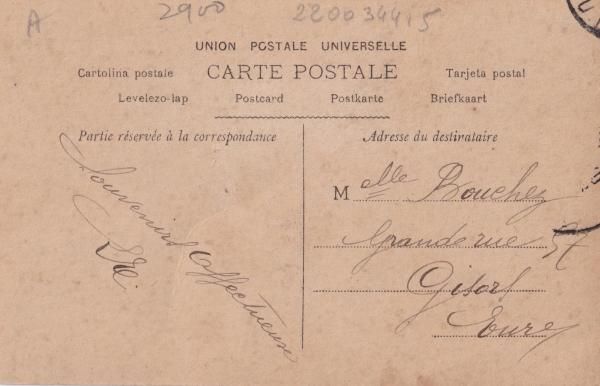 A 2900 220034415
UNION POSTALE UNIVERSELLE
Cartolina postale CARTE POSTALE Tarjeta postal
Levelezo-lap Postcard Postkarte Briefkaart
Partie réservée à la correspondance
Souvenirs affectueuse
Adresse du destinataire
Melle Bouchez
Grande rue 57
Gisors
Eure